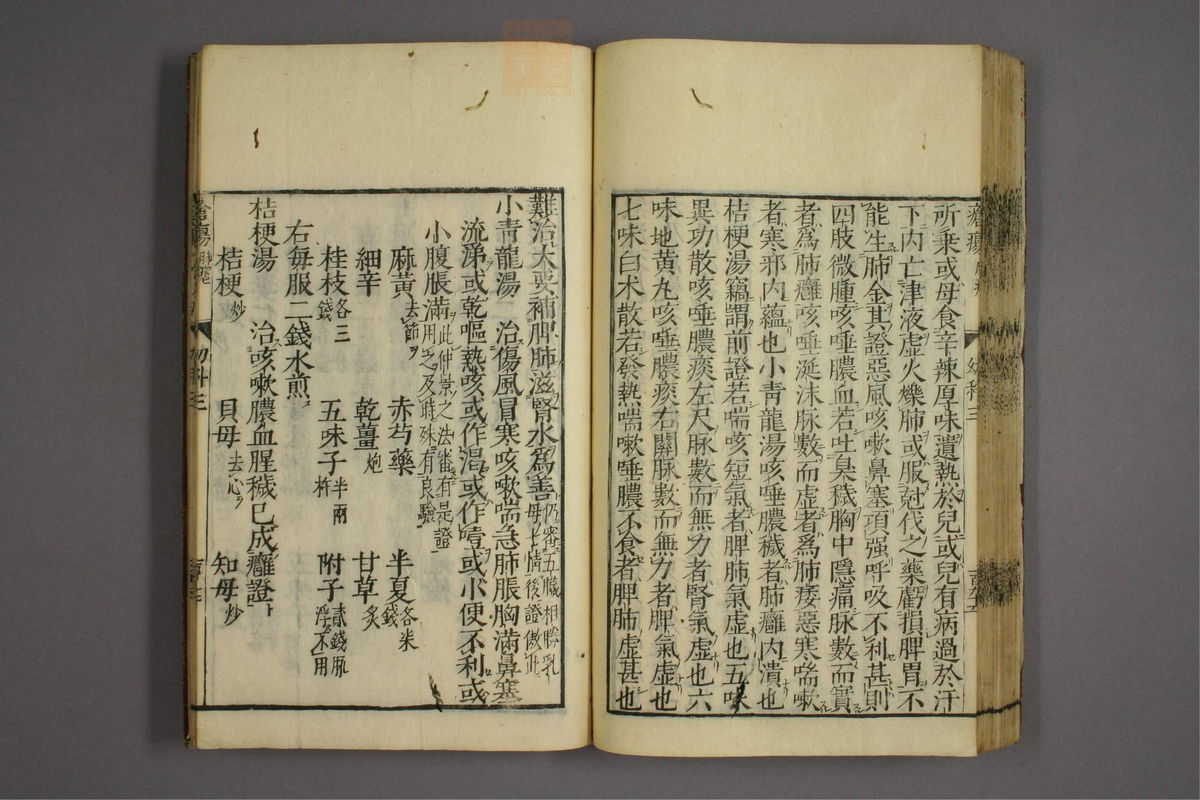 所乘或母食辛辣厚味遺熱於兒或兒有病過於汗
下內亡津液虛火爍肺或服尅伐之藥虧損脾胃不
能生肺金其證惡風咳嗽鼻塞項强呼吸不利甚則
四肢微腫咳唾膿血若吐臭穢胸中隱痛脉數而實
者爲肺癰咳唾涎沫脉數而虛者爲肺痿惡寒喘嗽
者寒邪內蘊也小青龍湯咳唾膿穢者肺癰內潰也
桔梗湯竊謂前證若喘咳短氣者脾肺氣虛也五味
異功散咳唾膿痰左尺脉數而無力者腎氣虛也六
味地黃丸咳唾膿痰右關脉數而無力者脾氣虛也
七味白朮散若發熱喘嗽唾膿不食者脾肺虛甚也
難治大要補脾肺滋腎水爲善仍審五臟相勝乳母七情後證倣此
小青龍湯 治傷風冒寒咳嗽喘急肺脹胸滿鼻塞
流涕或乾嘔熱咳或作渴或作噎或小便不利或
小腹脹滿此仲景之法審有是證用之及時殊有良驗
麻黃去節 赤芍藥 半夏各柒錢
細辛 乾薑炮 甘草炙
桂枝各三錢 五味子半兩杵 附子貳錢脉浮不用
右每服二錢水煎
桔梗湯 治咳嗽膿血腥穢已成癰證
桔梗炒 貝母去心 知母炒
幼科三